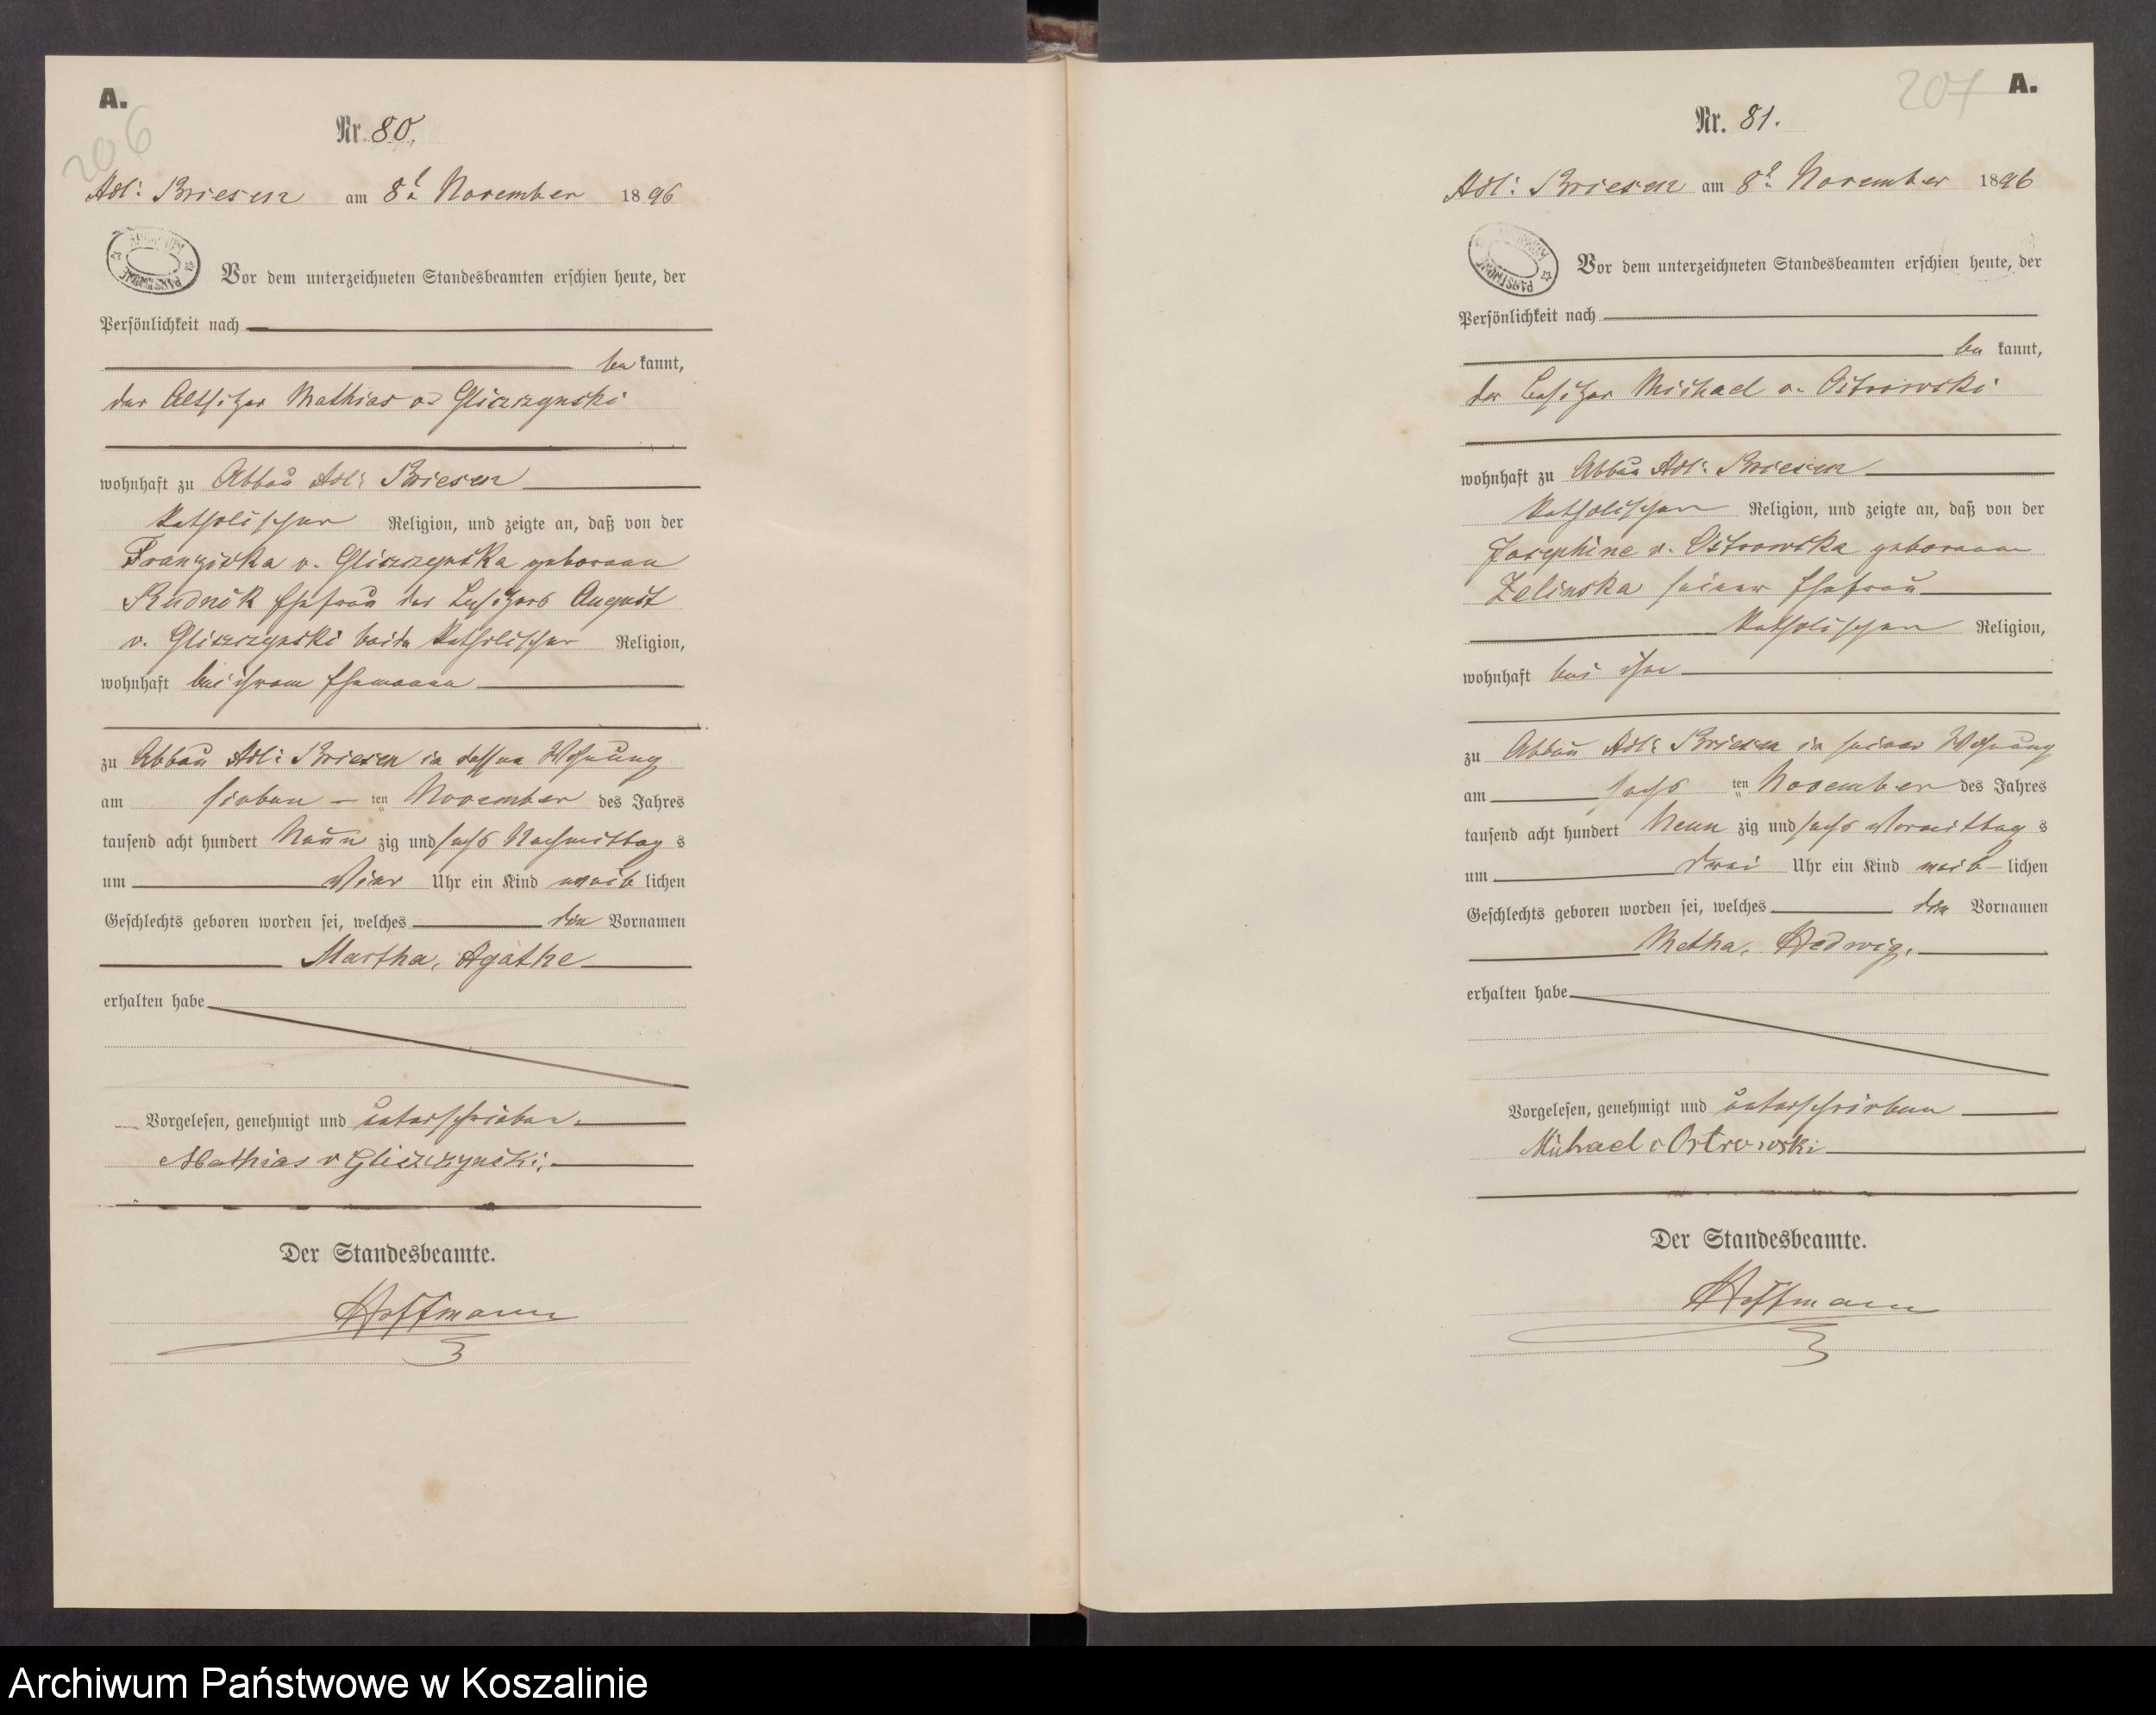 A.
206
Nr. 80.
Adl: Briesen am 8t November 1896
Vor dem unterzeichneten Standesbeamten erschien heute, der
Persönlichkeit nach
be kannt,
der Altsitzer Mathias v. Gliszczynski
wohnhaft zu Abbau Adl: Briesen
katholischer Religion, und zeigte an, daß von der
Franziska v. Gliszczynska geborenen
Rudnik Ehefrau des Besitzers August
v. Gliszczynski beide katholischer Religion,
wohnhaft bei ihrem Ehemann
zu Abbau Adl: Briesen in dessen Wohnung
am sieben ten November des Jahres
tausend acht hundert Neun zig und sechs Nachmittag s
um Vier Uhr ein Kind weib lichen
Geschlechts geboren worden sei, welches die Vornamen
Martha, Agathe
erhalten habe
Vorgelesen, genehmigt und unterschrieben.
Mathias v Gliszczynski.
Der Standesbeamte.
Hoffmann
207
A.
Nr. 81.
Adl: Briesen am 8t November 1896
Vor dem unterzeichneten Standesbeamten erschien heute, der
Persönlichkeit nach
be kannt,
der Besitzer Michael v. Ostrowski
wohnhaft zu Abbau Adl: Briesen
katholischer Religion, und zeigte an, daß von der
Josephine v. Ostrowska geborenen
Zelinska seiner Ehefrau
katholischer Religion,
wohnhaft bei ihm
zu Abbau Adl: Briesen in seiner Wohnung
am sechs ten November des Jahres
tausend acht hundert Neun zig und sechs Vormittag s
um drei Uhr ein Kind weib lichen
Geschlechts geboren worden sei, welches die Vornamen
Metha, Hedwig.
erhalten habe
Vorgelesen, genehmigt und unterschrieben
Michael v Ostrowski
Der Standesbeamte.
Hoffmann
Archiwum Państwowe w Koszalinie